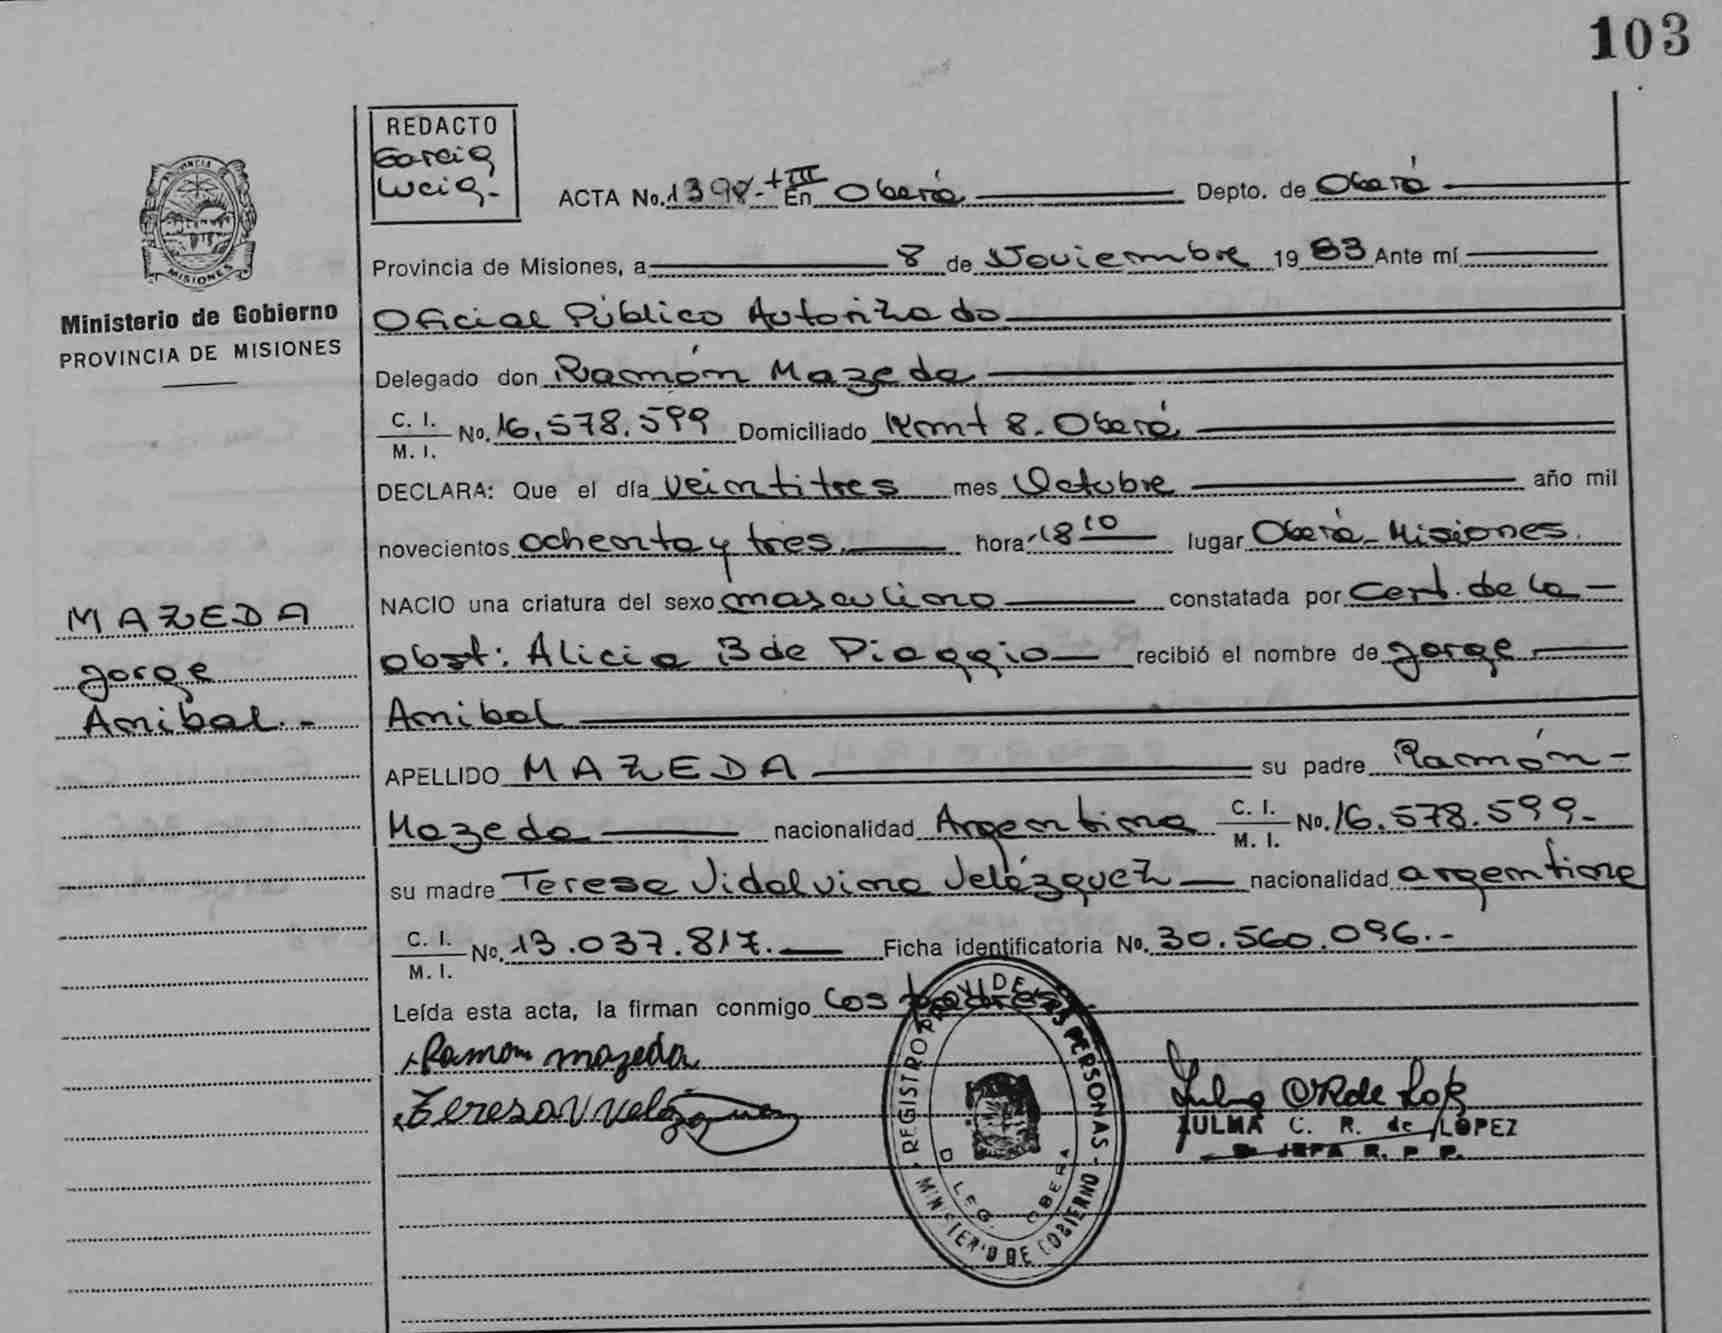 103
REDACTO
Garcia
Lucia.-
ACTA No. 1398.- + III En Oberá Depto. de Oberá
PROVINCIA
MISIONES
Provincia de Misiones, a 8 de Noviembre 1983 Ante mí
Ministerio de Gobierno
PROVINCIA DE MISIONES
Oficial Público Autorizado
Delegado don Ramón Mazeda
C. I.
M. I. No. 16.578.599 Domiciliado Kmt 8. Oberá
DECLARA: Que el día veintitres mes Octubre año mil
novecientos ochenta y tres hora 18 10 lugar Oberá - Misiones.
NACIO una criatura del sexo masculino constatada por Cert. de la -
MAZEDA
Jorge
Anibal.-
obst: Alicia B de Piaggio recibió el nombre de Jorge
Anibal
APELLIDO MAZEDA su padre Ramón -
Mazeda nacionalidad Argentina C. I. M. I. No. 16.578.599-
su madre Teresa Vidalvina Velázquez nacionalidad argentina
C. I.
M. I. No. 13.037.817.- Ficha identificatoria No. 30.560.096.-
Leída esta acta, la firman conmigo los padres
Ramon mazeda
Teresa V Velázquez
REGISTRO PROV. DE LAS PERSONAS
MINISTERIO DE GOBIERNO
DELEG. OBERA
JULMA C. R. de LOPEZ
JEFA R. P. P.